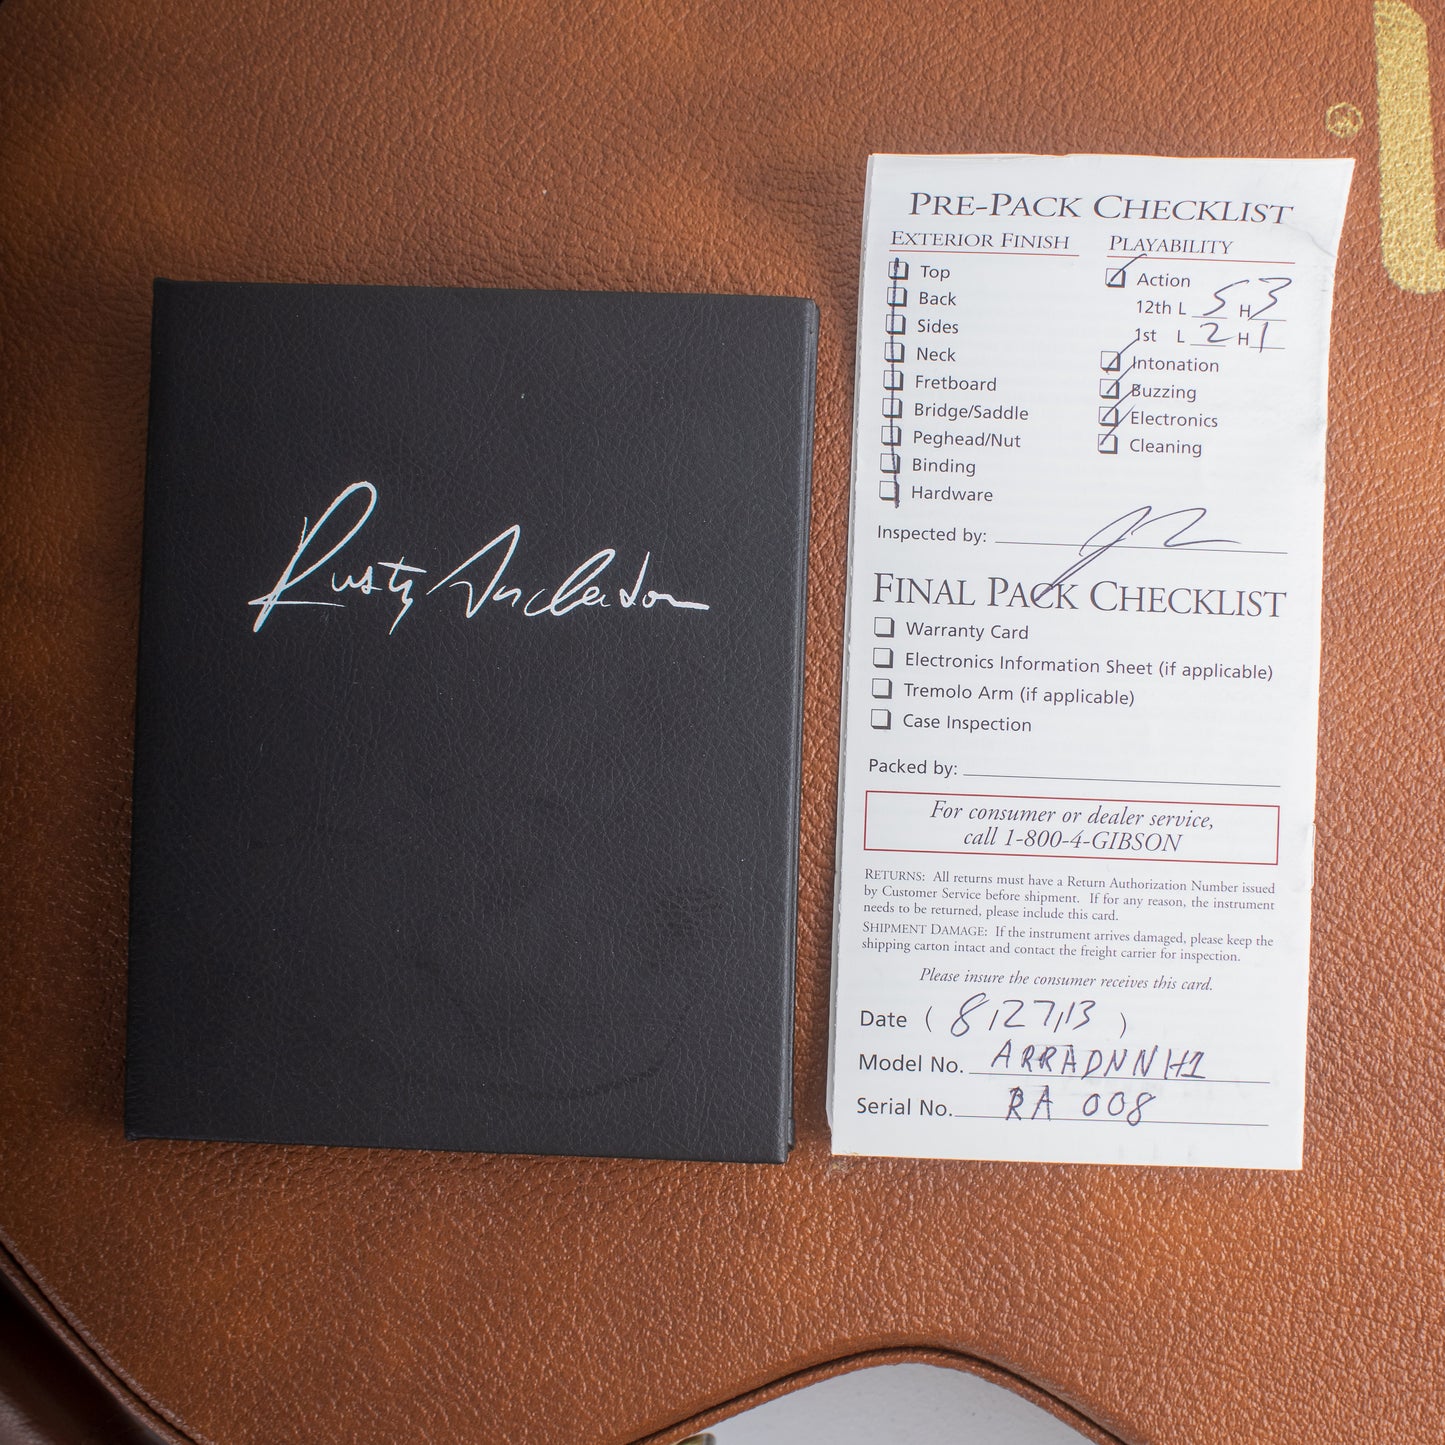 Rusty Anderson
PRE-PACK CHECKLIST
EXTERIOR FINISH
Top
Back
Sides
Neck
Fretboard
Bridge/Saddle
Peghead/Nut
Binding
Hardware
PLAYABILITY
Action
12th L 5 H 3
1st L 2 H 1
Intonation
Buzzing
Electronics
Cleaning
Inspected by:
FINAL PACK CHECKLIST
Warranty Card
Electronics Information Sheet (if applicable)
Tremolo Arm (if applicable)
Case Inspection
Packed by:
For consumer or dealer service,
call 1-800-4-GIBSON
RETURNS: All returns must have a Return Authorization Number issued
by Customer Service before shipment. If for any reason, the instrument
needs to be returned, please include this card.
SHIPMENT DAMAGE: If the instrument arrives damaged, please keep the
shipping carton intact and contact the freight carrier for inspection.
Please insure the consumer receives this card.
Date ( 8/27/13 )
Model No. ARRADNNH1
Serial No. RA 008